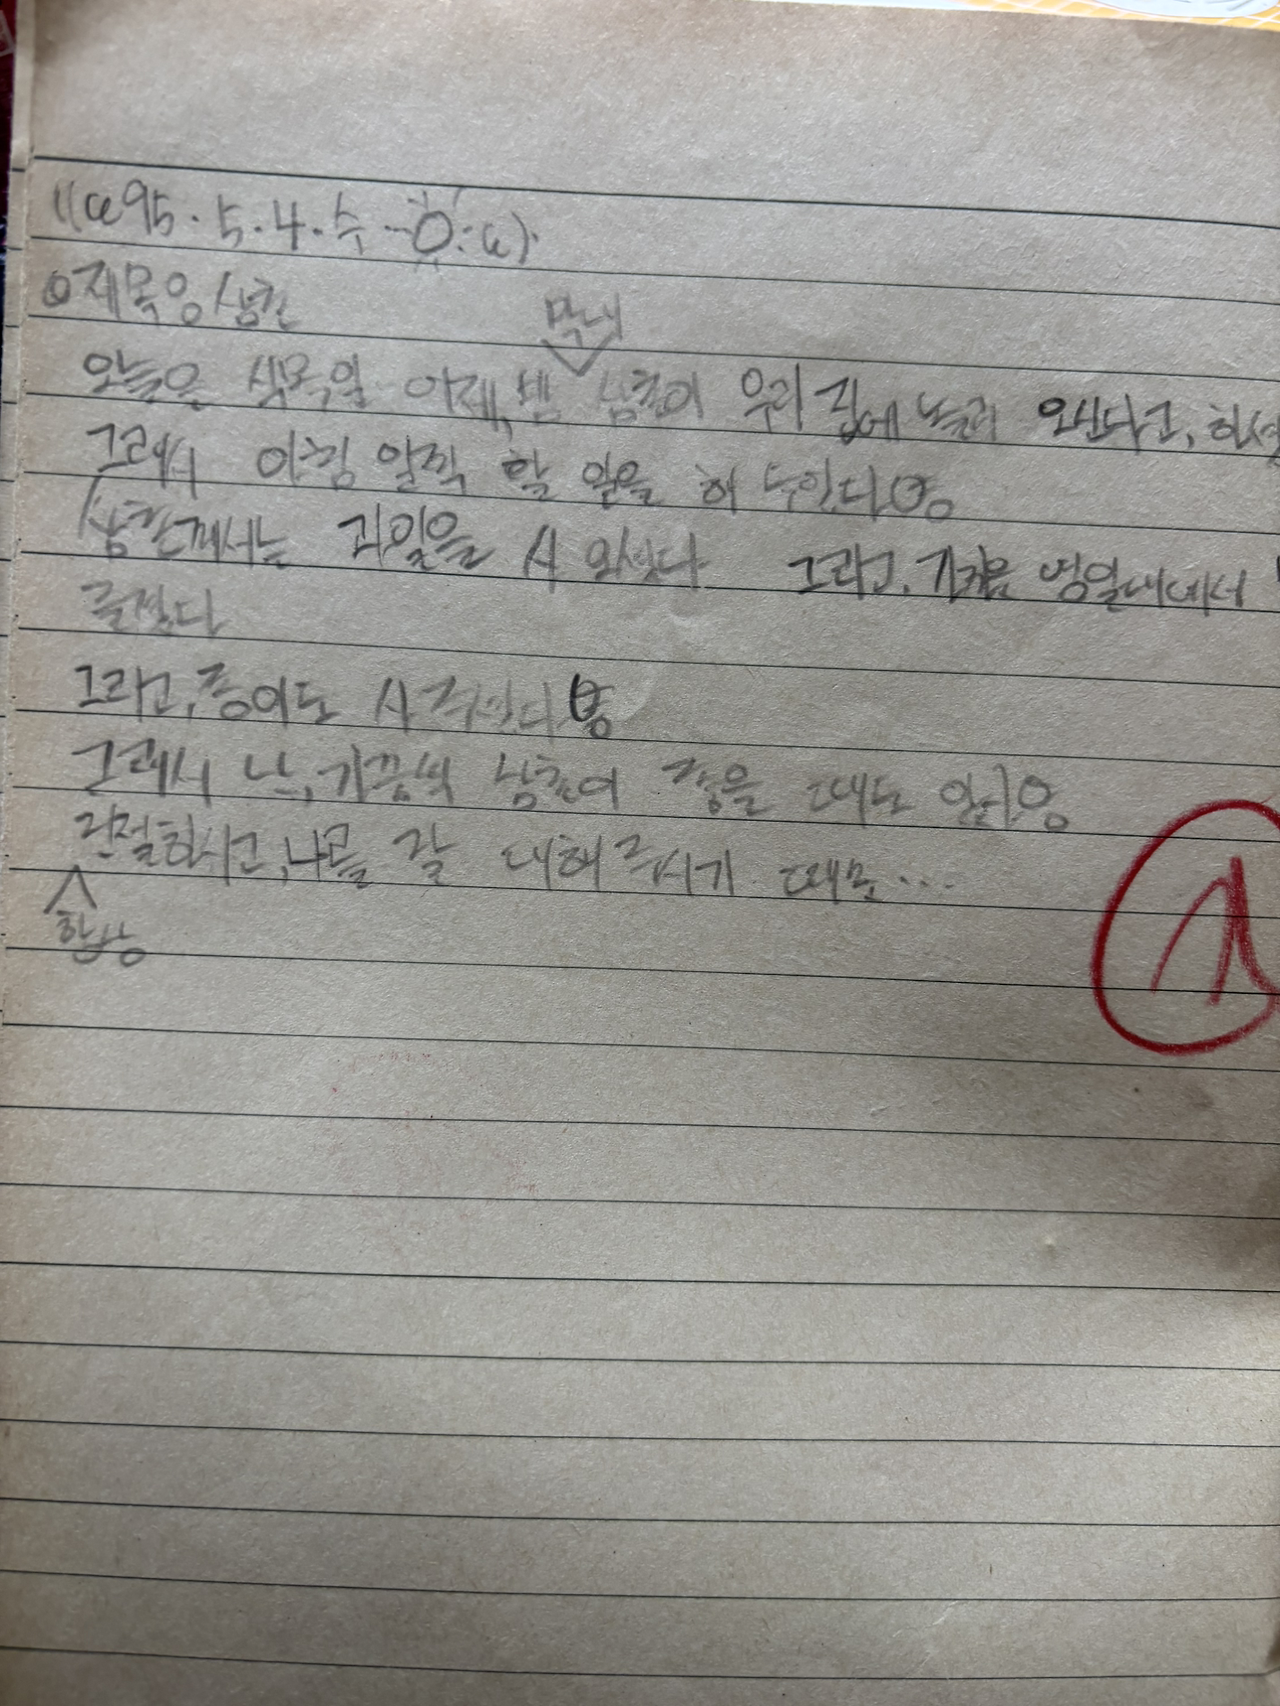 95. 5. 4. 수
제목 삼촌
막내
오늘은 식목일 어제, 밤 삼촌이 우리집에 놀러 오신다고, 하셨
그래서 아침 일찍 할 일을 해 두었다
삼촌께서는 과일을 사 오셨다 그라고, 병일내에서
그라고, 종이도 사 주셨다
그래서 난, 가끔씩 삼촌이 좋을 때도 있다
친절하시고, 나를 잘 대해 주시기 때문...
항상